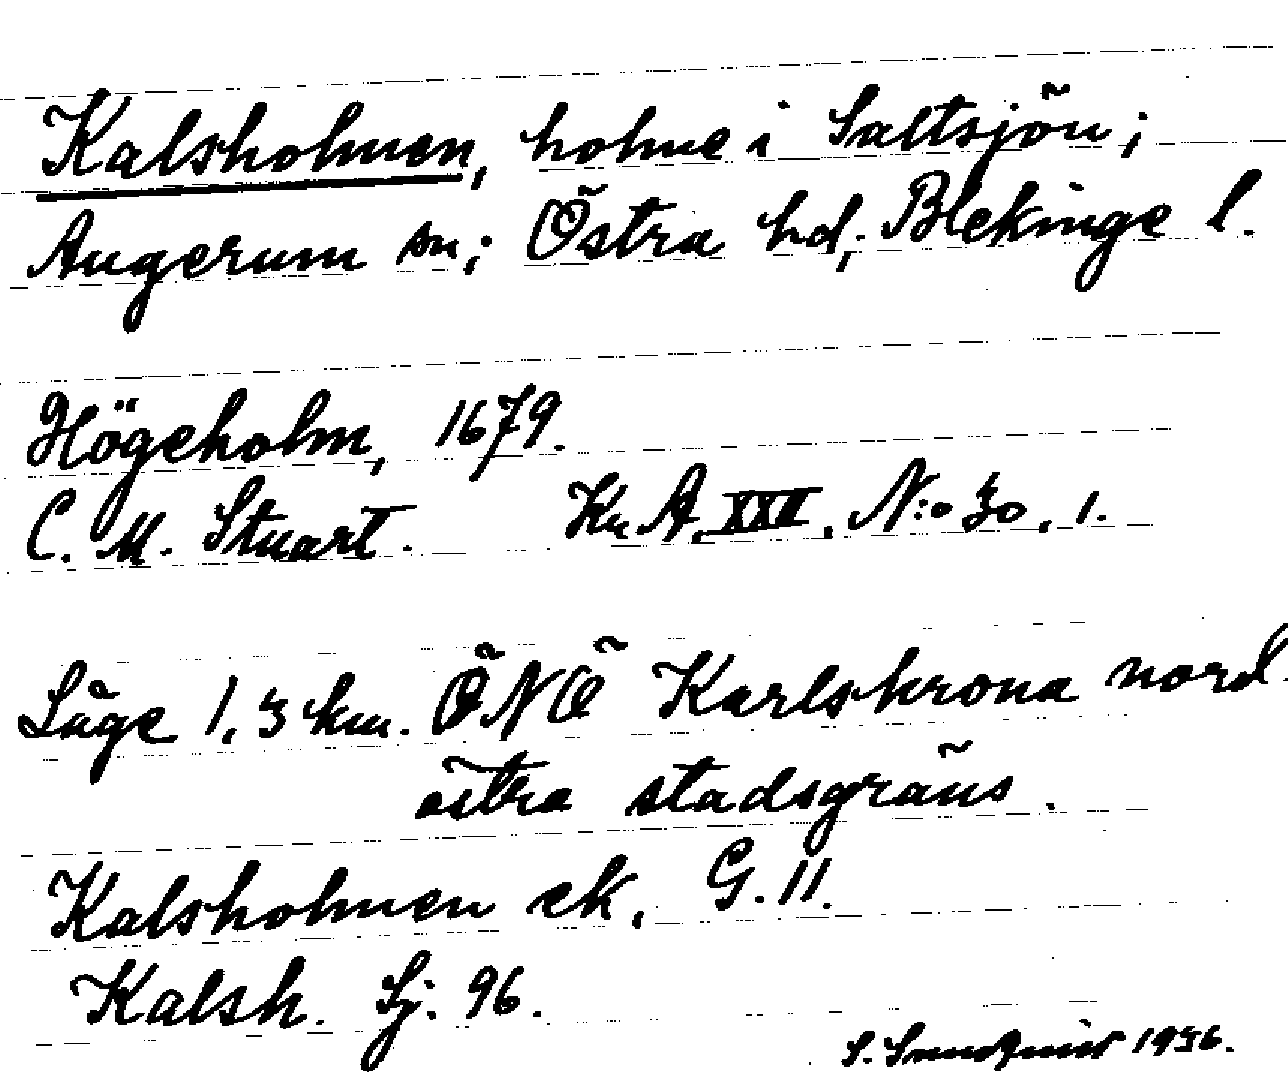 Kalsholmen, holme i Saltsjön;
Augerum sn; Östra hd, Blekinge l.
Högeholm, 1679.
C. M. Stuart. Kr. A. XXII, N:o 30, 1.
Läge 1,3 km. ÖNÖ Karlskrona nord-
östra stadsgräns.
Kalsholmen ek, G. 11.
Kalsh. Sj. 96.
S. 1936.